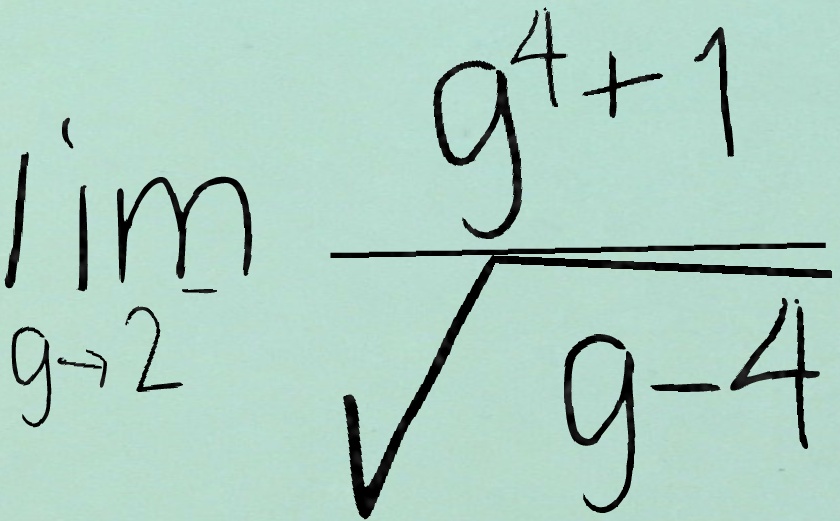 lim_{g \to 2^-} \frac{g^4+1}{\sqrt{g-4}}